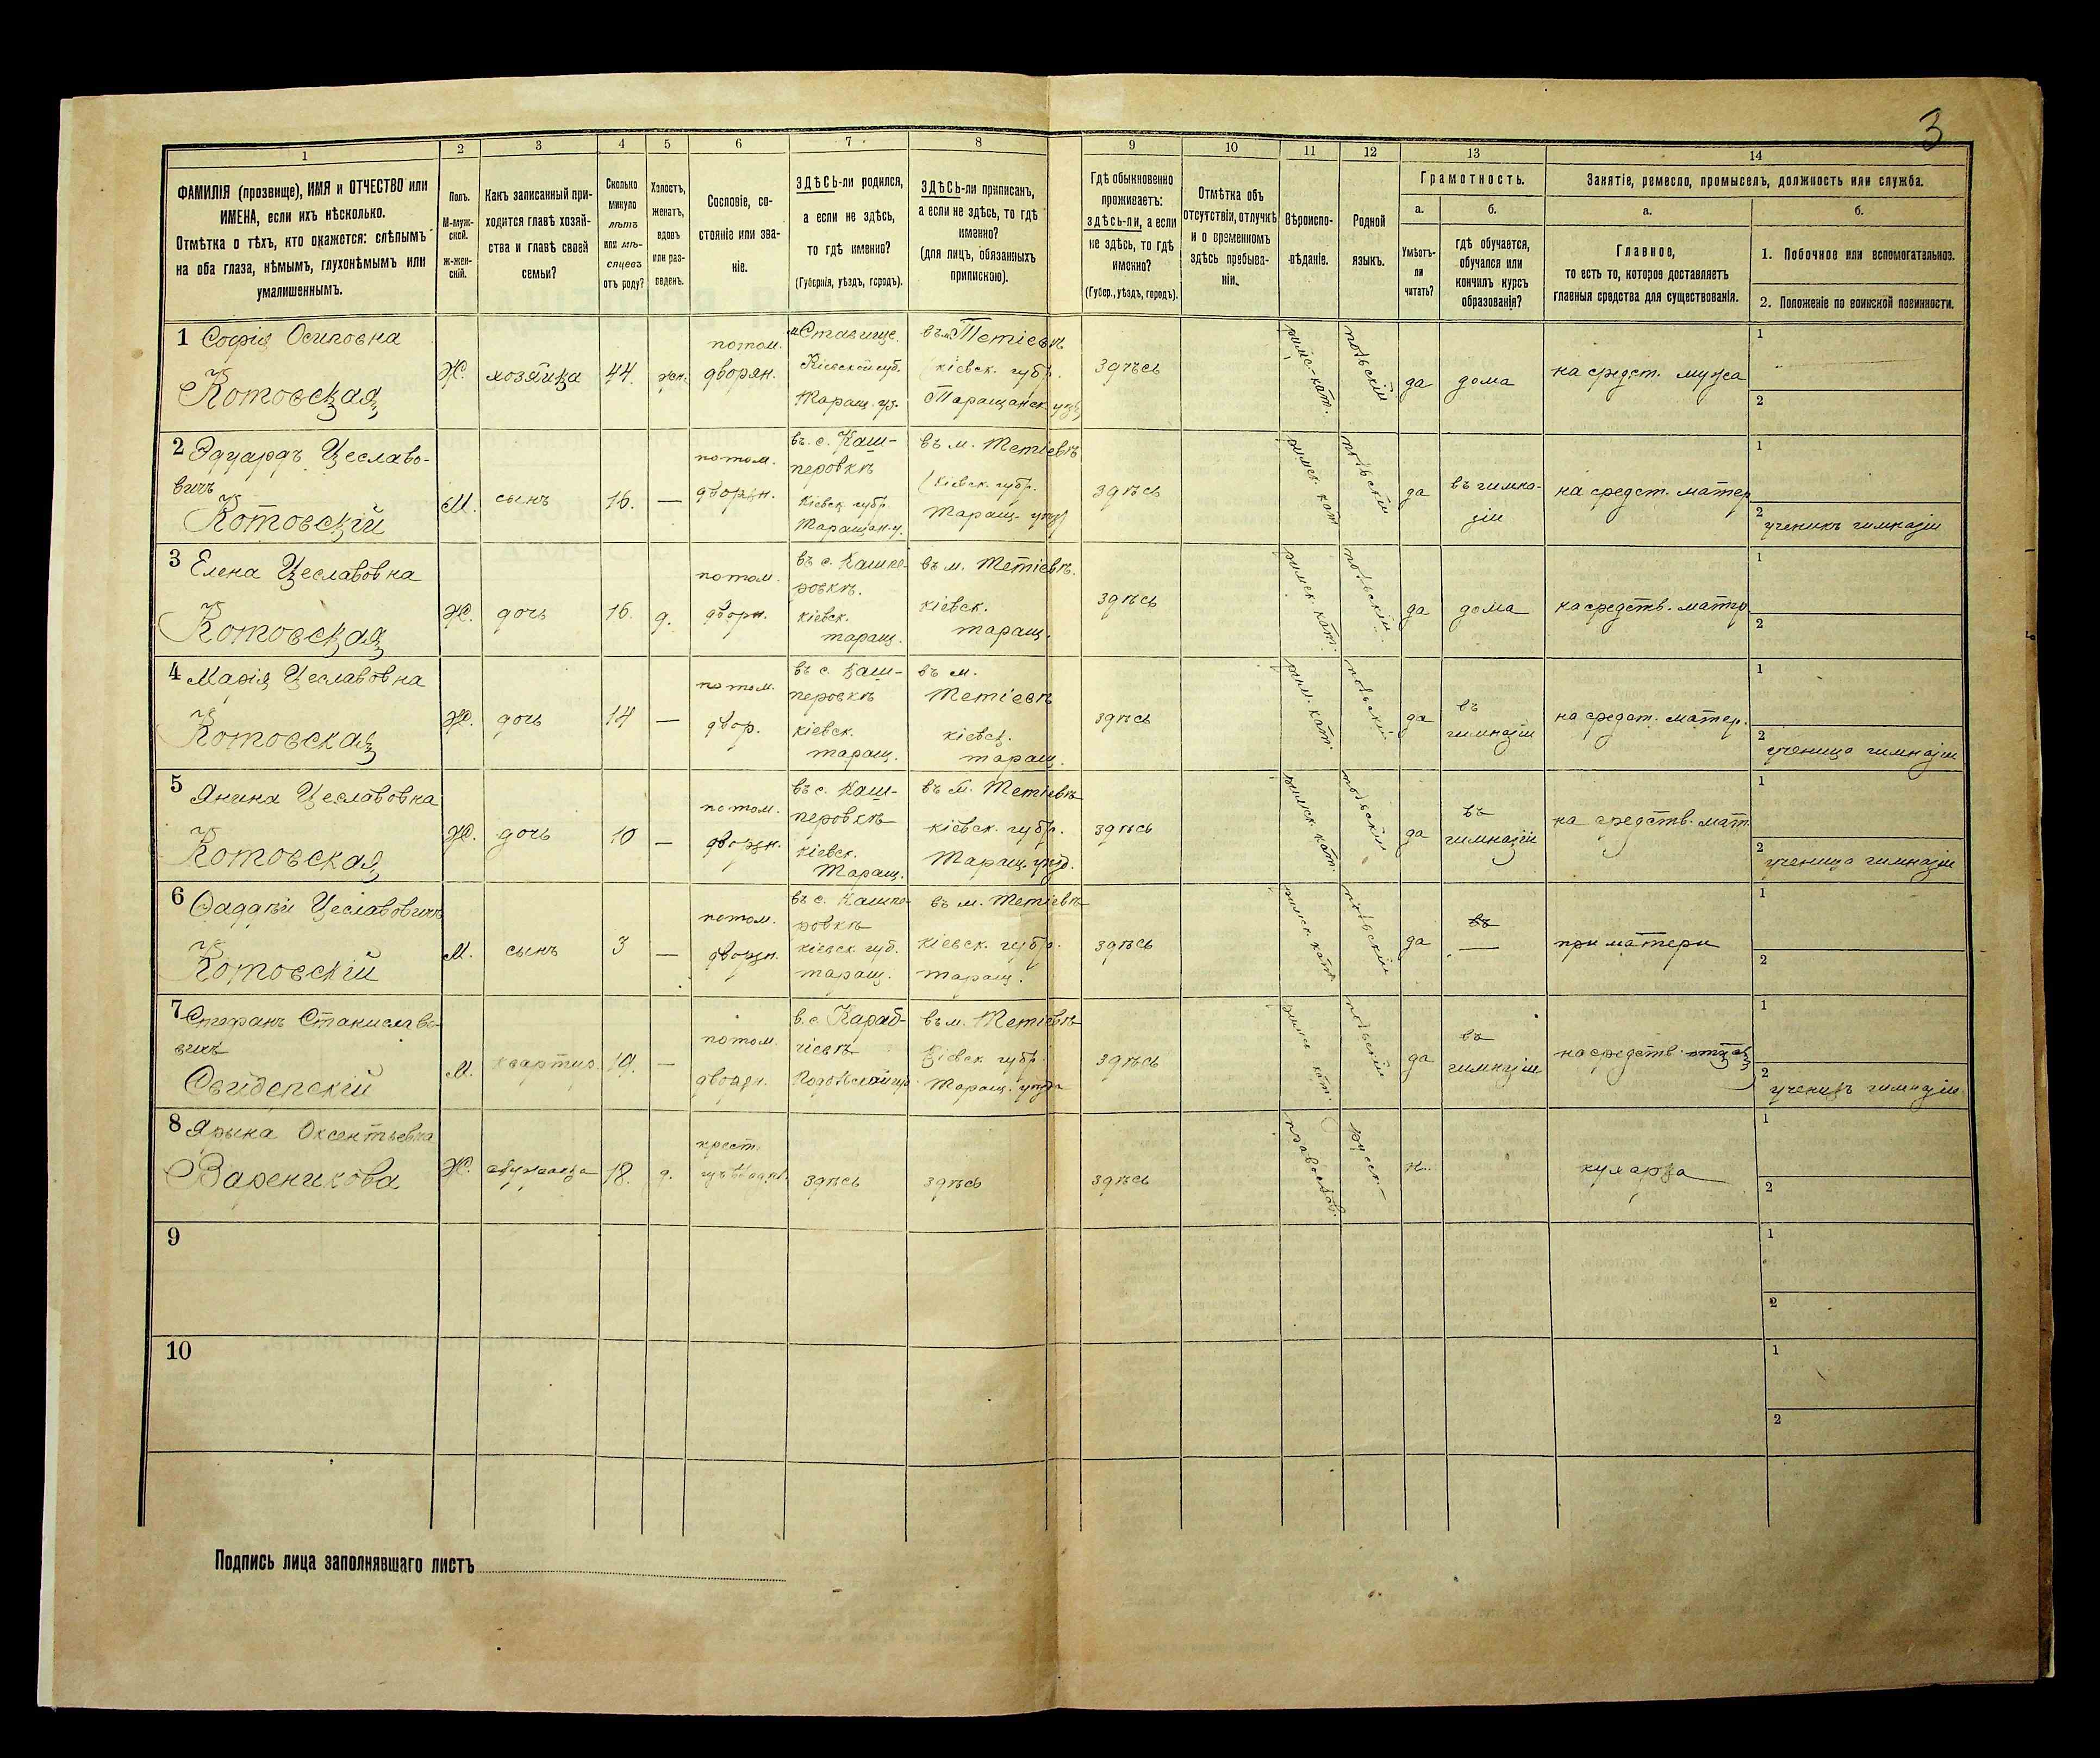 3
1
2
3
4
5
6
7
8
9
10
11
12
13
14
ФАМИЛІЯ (прозвище), ИМЯ и ОТЧЕСТВО или
ИМЕНА, если ихъ нѣсколько.
Отмѣтка о тѣхъ, кто окажется: слѣпымъ
на оба глаза, нѣмымъ, глухонѣмымъ или
умалишеннымъ.
Полъ.
М-муж-
ской.
Ж-жен-
скій.
Какъ записанный при-
ходится главѣ хозяй-
ства и главѣ своей
семьи?
Сколько
минуло
лѣтъ
или мѣ-
сяцевъ
отъ роду?
Холостъ,
женатъ,
вдовъ
или раз-
веденъ.
Сословіе, со-
стояніе или зва-
ніе.
ЗДѢСЬ-ли родился,
а если не здѣсь,
то гдѣ именно?
(Губернія, уѣздъ, городъ).
ЗДѢСЬ-ли приписанъ,
а если не здѣсь, то гдѣ
именно?
(для лицъ, обязанныхъ
припискою).
Гдѣ обыкновенно
проживаетъ:
здѣсь-ли, а если
не здѣсь, то гдѣ
именно?
(Губер., уѣздъ, городъ).
Отмѣтка объ
отсутствіи, отлучкѣ
и о временномъ
здѣсь пребыва-
ніи.
Вѣроиспо-
вѣданіе.
Родной
языкъ.
Грамотность.
а.
Умѣетъ-
ли
читать?
б.
гдѣ обучается,
обучался или
кончилъ курсъ
образованія?
Занятіе, ремесло, промыселъ, должность или служба.
а.
Главное,
то есть то, которое доставляетъ
главныя средства для существованія.
б.
1. Побочное или вспомогательное.
2. Положеніе по воинской повинности.
1 Софія Осиповна
Котовская
Ж.
хозяйка
44.
потом.
дворян.
м. Ставище.
Кіевской губ.
Таращ. уѣ.
въ м. Тетіевѣ
кіевск. губр.
Таращанск. уѣз
здѣсь
римс.-кат.
польскій
да
дома
на средст. мужа
1
2
2 Эдуардъ Цеславо-
вичъ
Котовскій
М.
сынъ
16.
—
потом.
дворян.
въ. с. Каш-
перовкѣ
Кіевск губр
Таращан. у.
въ м. Тетіевѣ
(Кіевск. губр.
Таращ. уѣзд
здѣсь
римск. кат
польскій
да
въ гимна-
зіи
на средст. матер
1
2
ученикъ гимназіи
3 Елена Цеславовна
Котовская
Ж.
дочь
16.
д.
потом.
дворн.
въ с. Кашпе-
ровкѣ.
кіевск.
таращ.
въ м. Тетіевѣ.
кіевск.
таращ.
здѣсь
римск. кат.
польскій
да
дома
на средств. матер
1
2
4 Марія Цеславовна
Котовская
Ж.
дочь
14
—
потом.
двор.
въ с. Каш-
перовкѣ
кіевск.
таращ.
въ м.
Тетіевѣ
кіевск.
таращ.
здѣсь
рим. кат.
польскій
да
въ
гимназіи
на средст. матер.
1
2
ученица гимназіи
5 Янина Цеславовна
Котовская
Ж.
дочь
10
—
потом.
дворян.
въ с. Каш-
перовкѣ
кіевск.
Таращ.
въ м. Тетіевѣ
кіевск. губр.
Таращ. уѣзд.
здѣсь
римск. кат.
польскій
да
въ
гимназіи
на средств. мат.
1
2
ученица гимназіи
6 Фаддѣй Цеславовичъ
Котовскій
М.
сынъ
3
—
потом.
дворян.
въ с. Кашпе-
ровкѣ
кіевск. губ.
таращ.
въ м. Тетіевѣ
кіевск. губр.
таращ.
здѣсь
римск. кат
польскій
да
въ
—
при матери
1
2
7 Стефанъ Станиславо-
вичъ
М.
квартир.
19.
—
потом.
дворян.
в. с. Караб-
чіевѣ
въ м. Тетіевѣ
Кіевск губр.
Таращ. уѣзда
здѣсь
римск кат.
польскій
да
въ
гимназіи
на средств. отца
1
2
ученикъ гимназіи
8 Ярына Оксентьевна
Вареникова
Ж.
18.
д.
крест.
здѣсь
здѣсь
здѣсь
православ.
русск.
н.
кухарка
1
2
9
1
2
10
1
2
Подпись лица заполнявшаго листъ